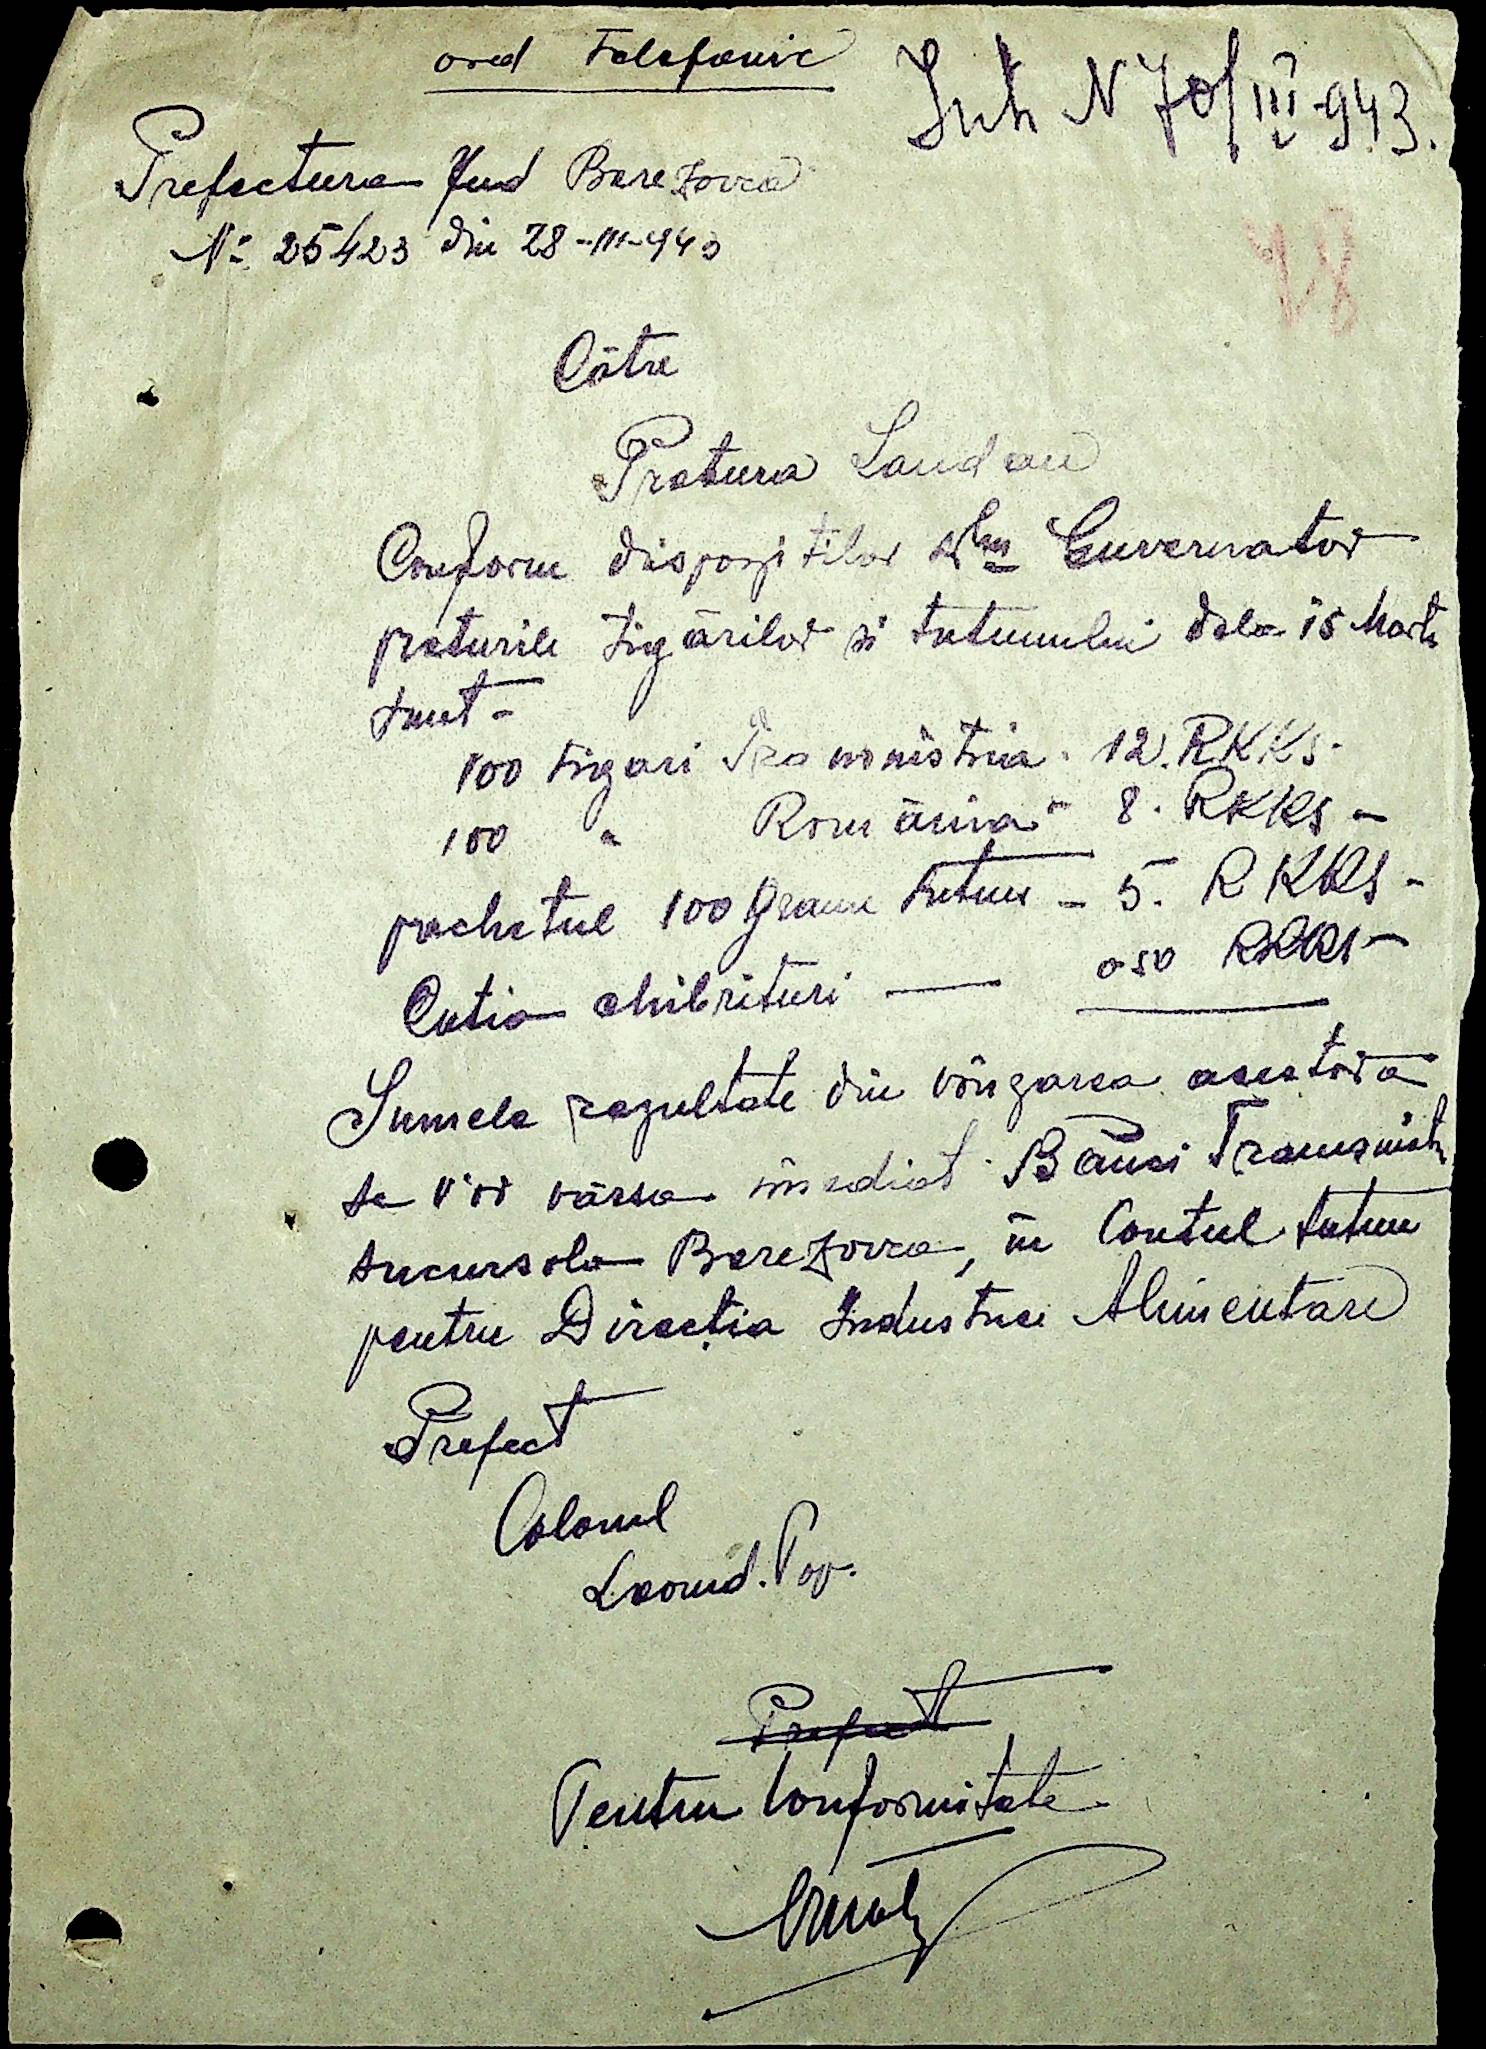 ord Telefonic
Inh N 70/III-943.
Prefectura Jud Berezovca
No 25423 din 28-III-943
78
Cãtre
Pretura Landau
Conform dispozitilor Dlm Guvernator
preturile tigãrilor si tutunului dela 15 Marte
sunt -
100 tigari Transnistria - 12. RKKS -
100 " România - 8. RKKS -
pachetul 100 grame tutun - 5. RKKS -
Cutia chibrituri — 0 50 RKKS -
Sumele rezultate din vânzarea acestora
se vor vãrsa imediat Bãncii Transnistr
sucursala Berezovca, în Contul tutun
pentru Direcția Industriei Alimentare
Prefect
Colonel
Leonid. Pop.
Prefect
Pentru Conformitate